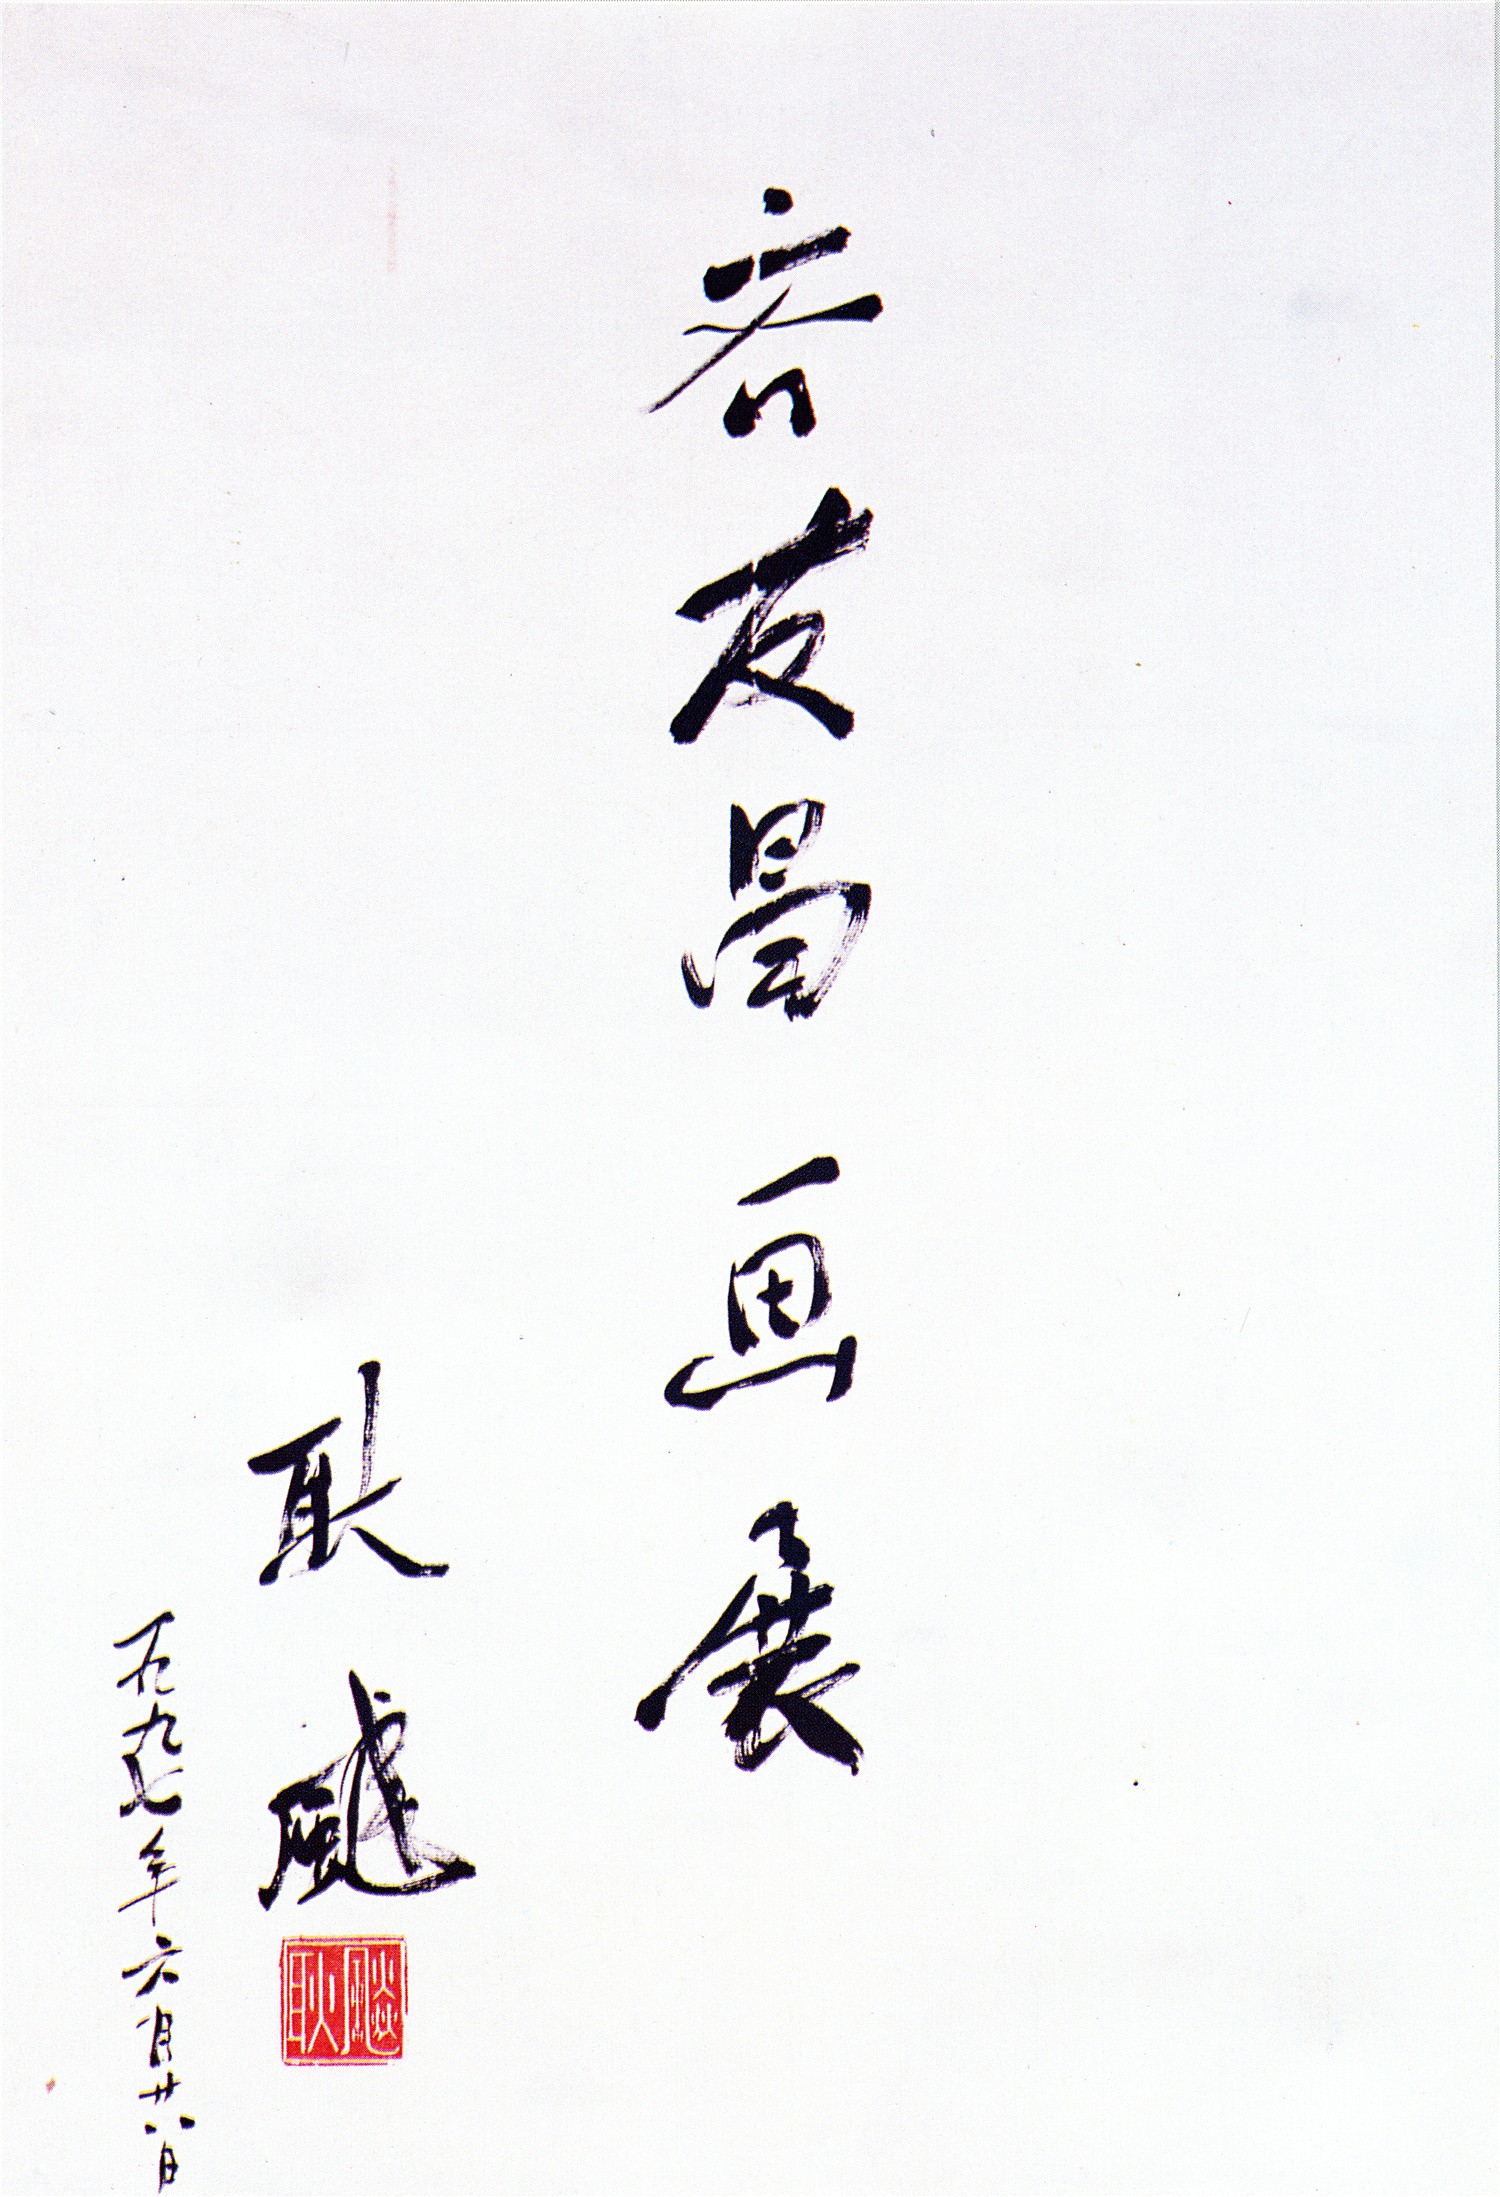 齐友昌画展
耿飚
一九九七年六月廿八日
耿飈